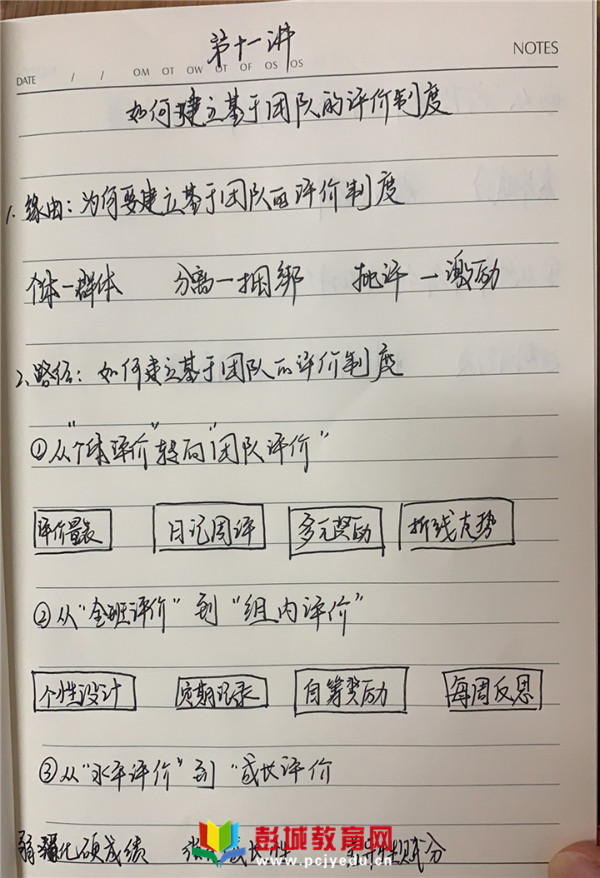 第十一讲
NOTES
DATE / / OM OT OW OT OF OS OS
如何建立基于团队的评价制度
1. 缘由：为何要建立基于团队的评价制度
个体—群体 分离—捆绑 批评—激励
2. 路径：如何建立基于团队的评价制度
①从“个体评价”转向“团队评价”
评价量表 日记周评 多元奖励 折线走势
②从“全班评价”到“组内评价”
个性设计 定期记录 自筹奖励 每周反思
③从“水平评价”到“成长评价
化硬成绩
彭城教育网
www.pcjyedu.cn